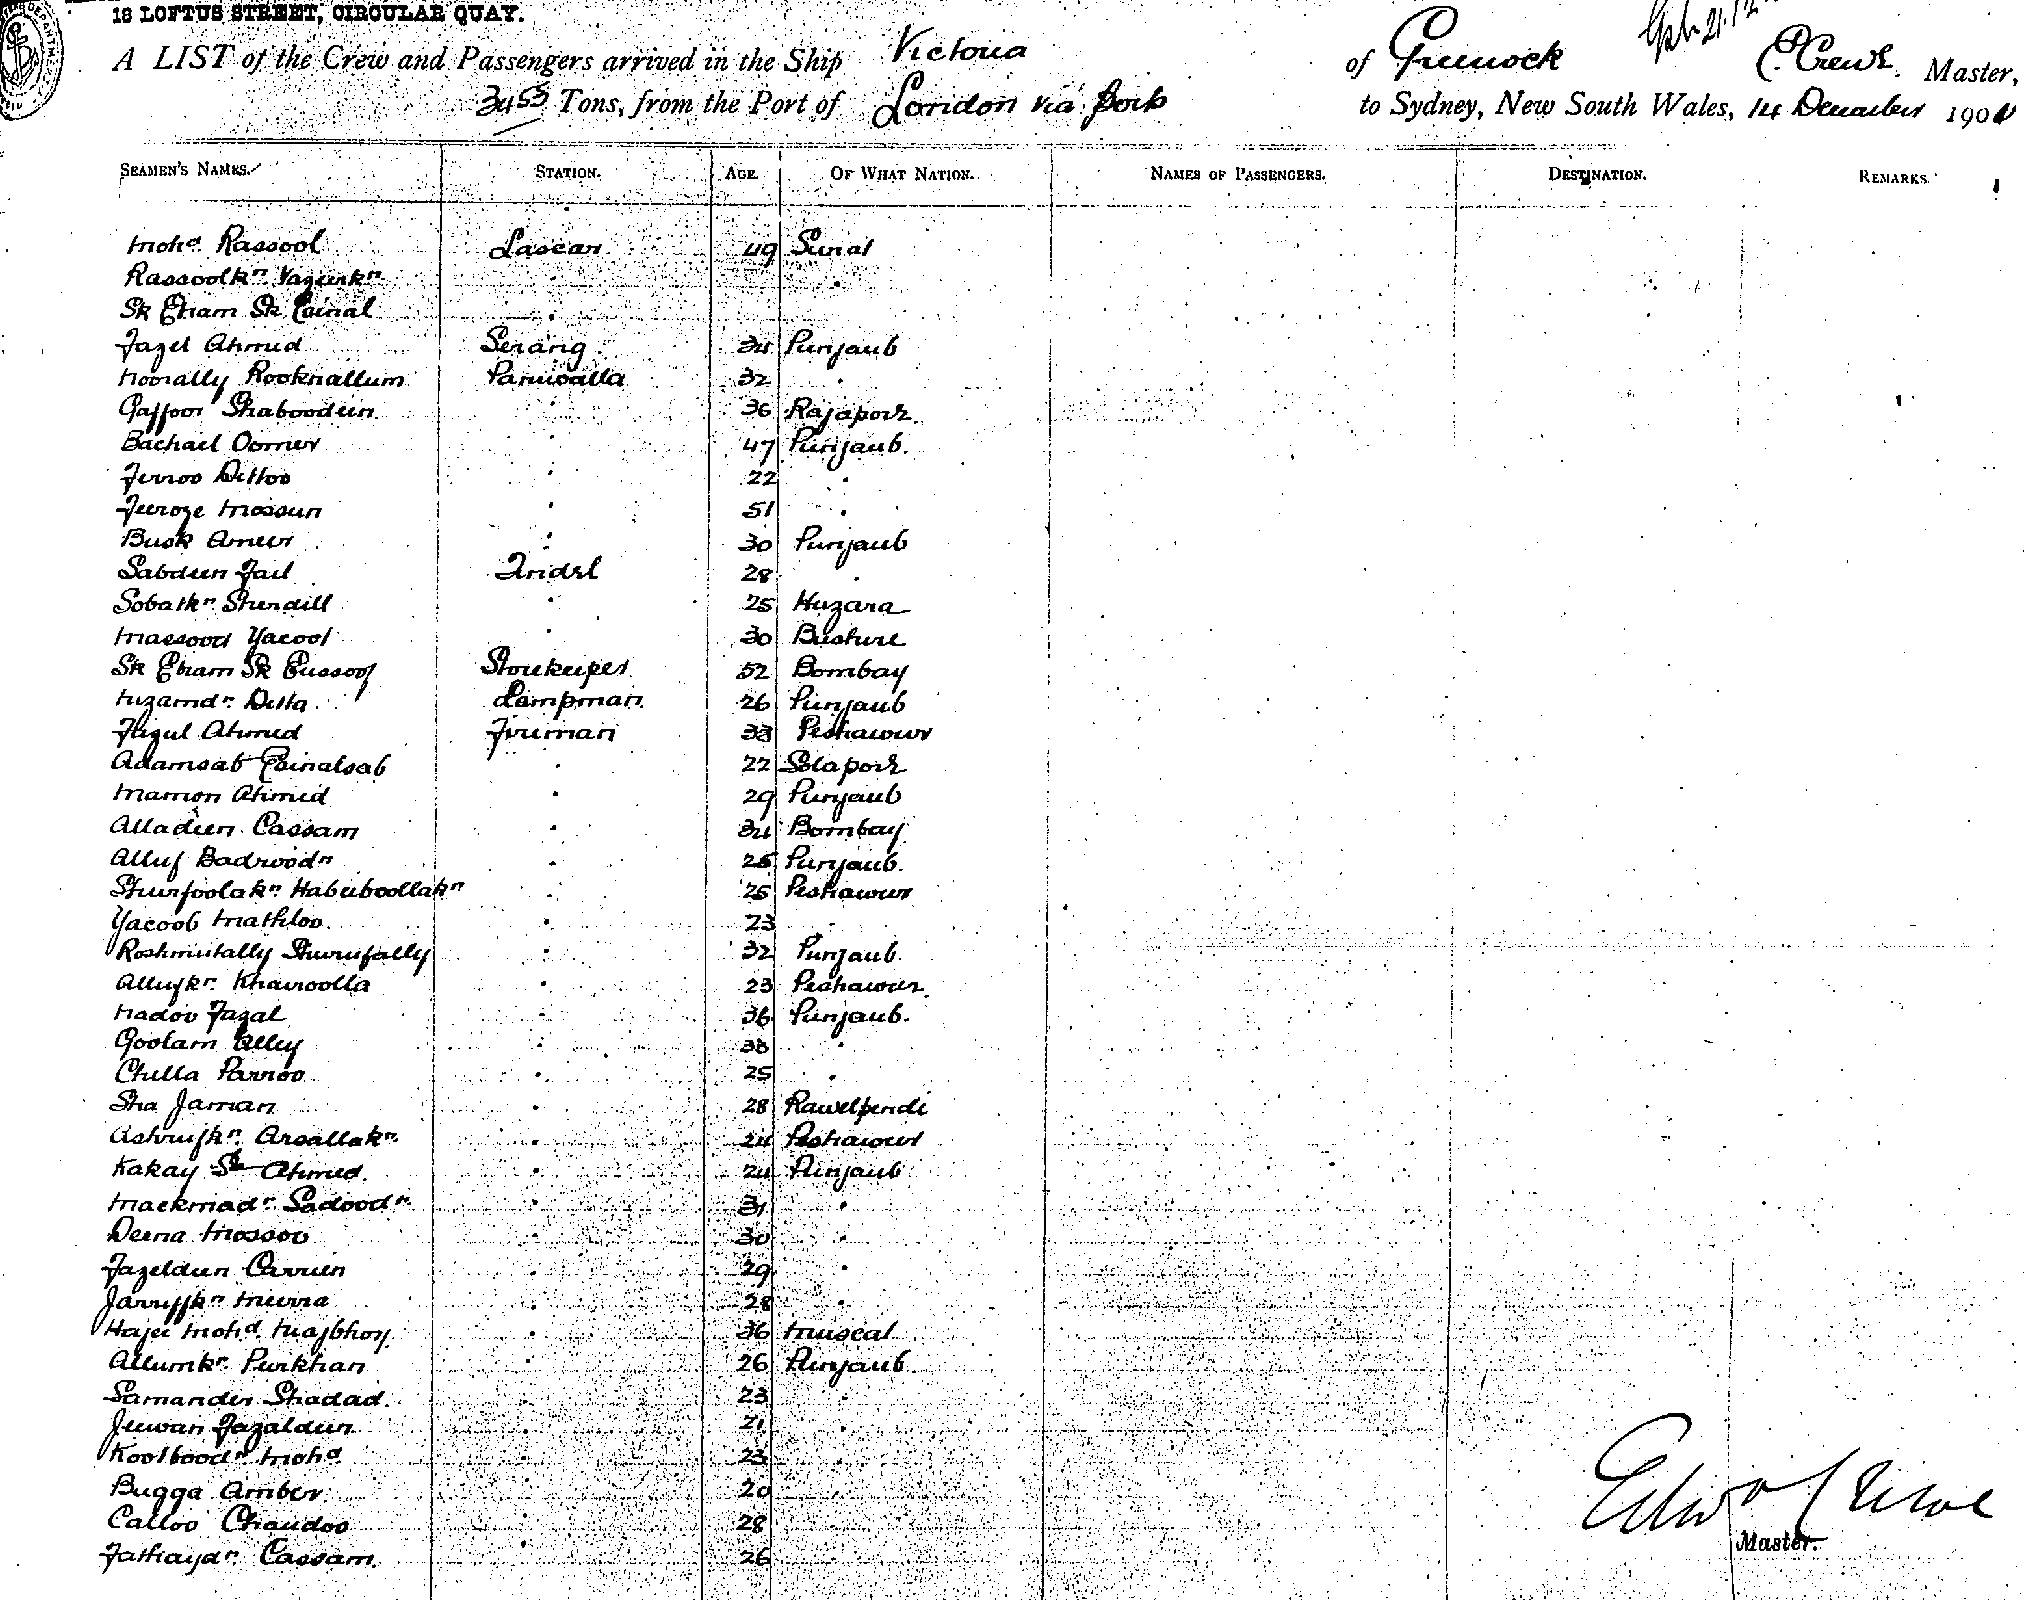 18 LOFTUS STREET, CIRCULAR QUAY.
A LIST of the Crew and Passengers arrived in the Ship Victoria of Greenock C. Crewe. Master,
3453 Tons, from the Port of London via ports to Sydney, New South Wales, 14 December 190
SEAMEN'S NAMES. STATION. AGE. OF WHAT NATION. NAMES OF PASSENGERS. DESTINATION. REMARKS.
Mohd. Rassool Lascar 49 Surat
Rassoolkn. Vazeerkn "
Sk Eham Sk Esinal "
Fazel Ahmed Serang 34 Punjaub
Noorally Rooknallum Paniwalla 32 "
Gaffoor Shaboodeen " 36 Rajapore
Bachael Oomer " 47 Punjaub.
Ferroo Dittoo " 22 "
Feeroze Mosseen " 51 "
Busk Ameer " 30 Punjaub
Sabdeen Fail Tindel 28 "
Sobatkn Sherdill " 25 Huzara
Massood Yacoot " 30 Bushire
Sk Eham Sk Eussoof Storekeeper 52 Bombay
Nizamdn Ditta Lampman 26 Punjaub
Fuzul Ahmed Fireman 33 Peshawur
Adamsab Esinalsab " 22 Solapore
Mamon Ahmed " 29 Punjaub
Alladeen Cassam " 34 Bombay
Alluf Badroodn " 25 Punjaub.
Shurfoolakn Habeeboollakn " 25 Peshawur
Yacoob Mathloo " 23 "
Roshmutally Shurufally " 32 Punjaub
Allufkn Khairoolla " 23 Peshawur
Nadov Fazal " 36 Punjaub.
Goolam Alley " 38 "
Chella Parnoo " 25 "
Sha Jaman " 28 Rawelpendi
Ashrufkn Arsallakn " 24 Peshawur
Kakay Sk Ahmed " 24 Punjaub
Mackmadn Sadoodn " 31 "
Deena Mossoo " 30 "
Fazeldeen Carrien " 29 "
Jarruffkn Meerra " 28 "
Hajee Mohd. Majbhoy " 36 Muscat
Allumkn Purkhan " 26 Punjaub
Samander Shadad " 23 "
Jeewan Fazaldeen " 21 "
Kootboodn Mohd " 23 "
Bugga Amber " 20 "
Calloo Chandoo " 28 "
Fathaydn Cassam " 26 "
Edwd Crewe
Master.